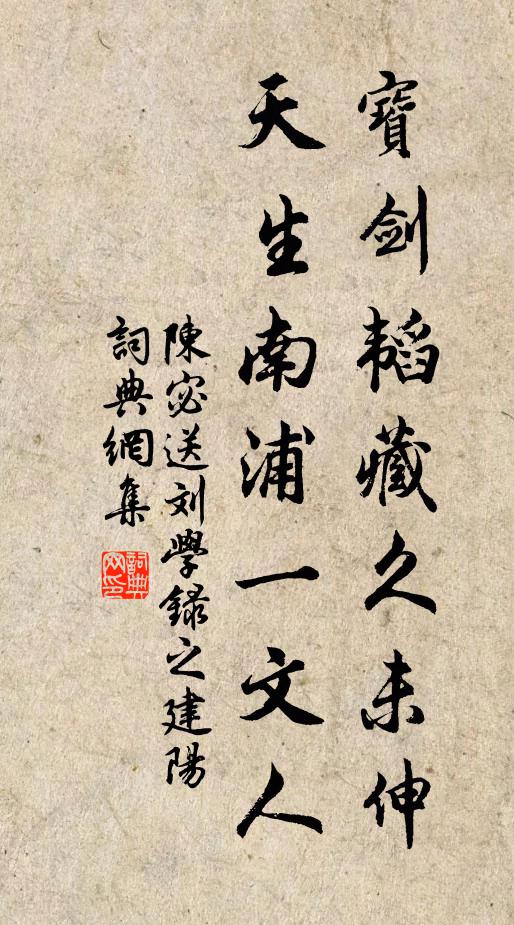 寶劍韜藏久未伸
天生南浦一文人
陳宓送刘學録之建陽
詞典網集
詞典網印